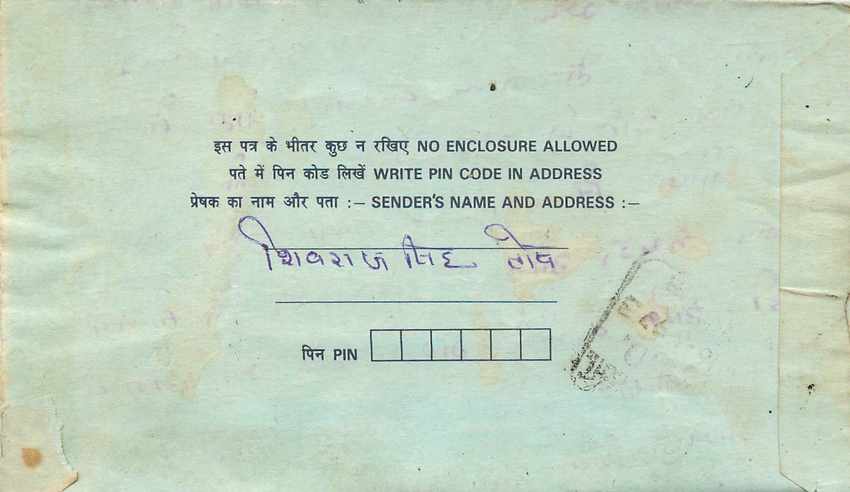 इस पत्र के भीतर कुछ न रखिए NO ENCLOSURE ALLOWED
पते में पिन कोड लिखें WRITE PIN CODE IN ADDRESS
प्रेषक का नाम और पता :— SENDER'S NAME AND ADDRESS :—
शिवराज सिंह
पिन PIN